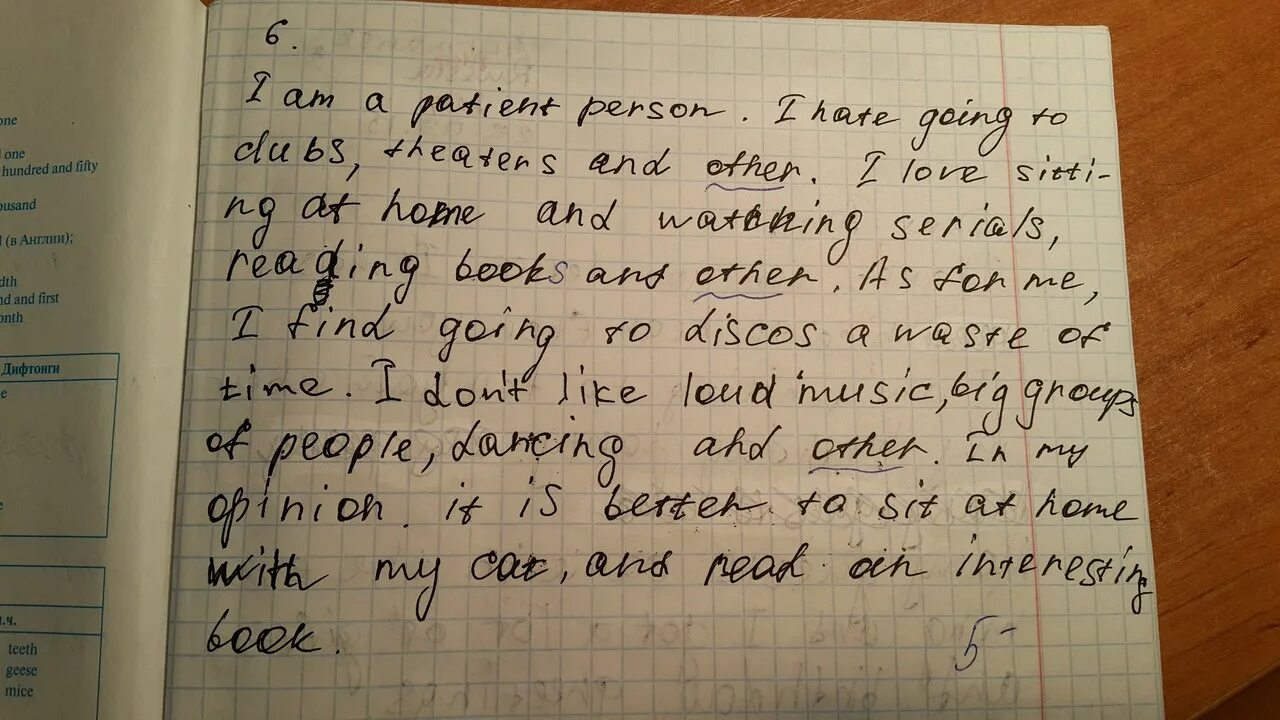 one
one
hundred and fifty
ousand
(в Англии);
dth
nd and first
onth
Дифтонги
e
e
.ч.
teeth
geese
mice
6.
I am a patient person. I hate going to
clubs, theaters and other. I love sitti-
ng at home and watching serials,
reading books and other. As for me,
I find going to discos a waste of
time. I don't like loud music, big groups
of people, dancing and other. In my
opinion. it is better to sit at home
with my cat, and read an interesting
book.
5-